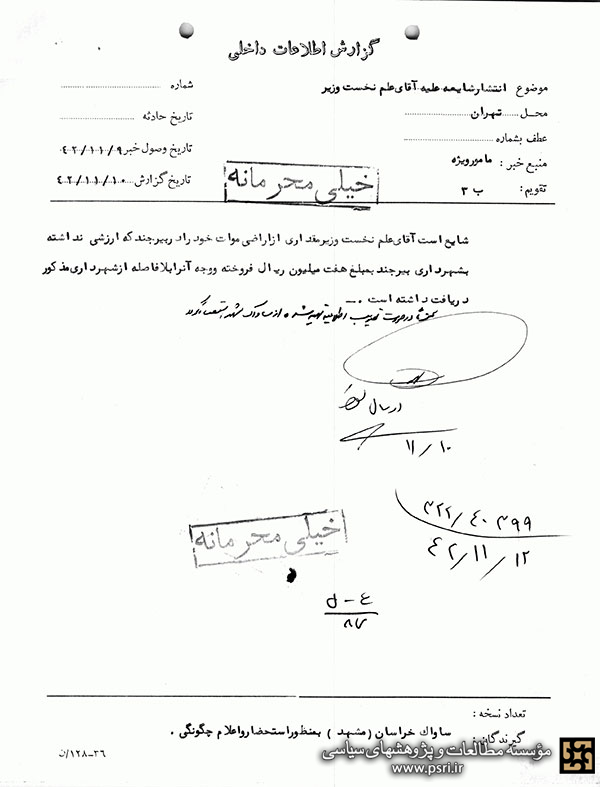 گزارش اطلاعات داخلی
موضوع انتشار شایعه علیه آقای علم نخست وزیر
محل ..... تهران .....
عطف بشماره .....
منبع خبر : مامور ویژه
تقویم : ب ۳
شماره .....
تاریخ حادثه .....
تاریخ وصول خبر ۴۲/۱۱/۹
تاریخ گزارش ۴۲/۱۱/۱۰
خیلی محرمانه
شایع است آقای علم نخست وزیر مقداری از اراضی موات خود را در بیرجند که ارزشی نداشته
بشهرداری بیرجند بمبلغ هفت میلیون ریال فروخته و وجه آنرا بلافاصله از شهرداری مذکور
دریافت داشته است . ــ
ارسال
۱۱/۱۰
۳۲۲/۴۰۳۹۹
۴۲/۱۱/۱۲
خیلی محرمانه
تعداد نسخه :
گیرندگان : ساواک خراسان (مشهد) بمنظور استحضار و اعلام چگونگی .
۳۶-۱۲۸/ن
مؤسسه مطالعات و پژوهشهای سیاسی
www.psri.ir